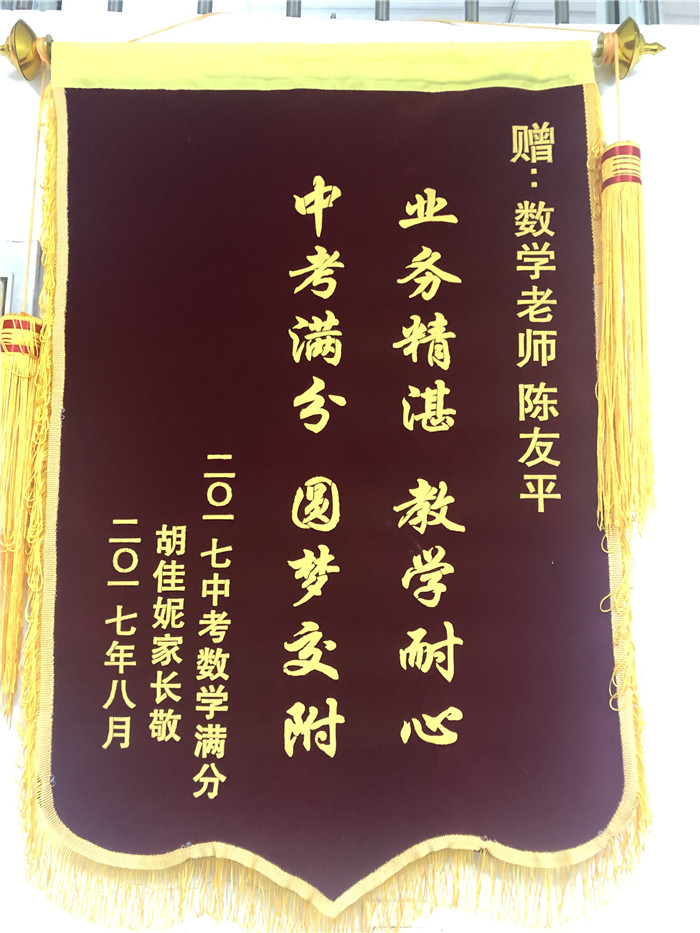 赠：数学老师 陈友平
业务精湛 教学耐心
中考满分 圆梦交附
二〇一七中考数学满分
胡佳妮家长敬
二〇一七年八月